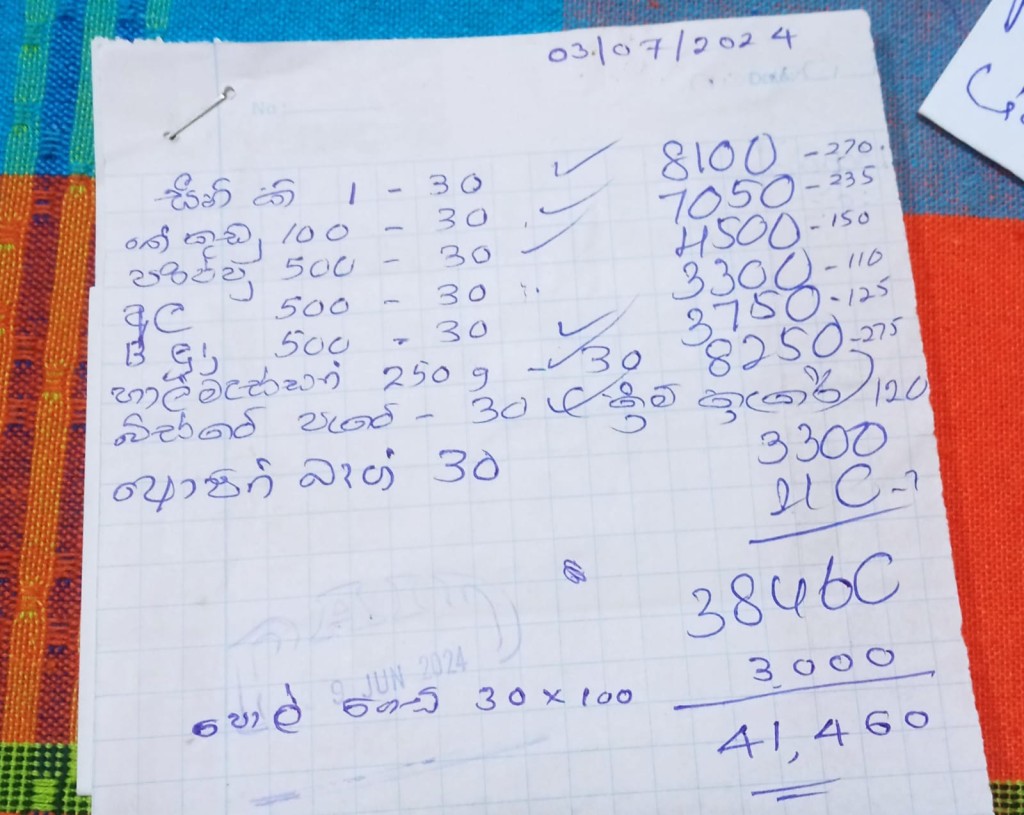 03/07/2024
No:
සීනි කි 1 - 30 ✓ 8100 - 270.
තේ කුඩු 100 - 30 ✓ 7050 - 235
පරිප්පු 500 - 30 ✓ 4500 - 150
අල 500 - 30 3300 - 110
B ළූ 500 - 30 ✓ 3750 - 125
හාල්මැස්සන් 250 g - 30 ✓ 8250 - 275
බිස්කට් පැකට් - 30 ✓ (ක්‍රීම් ක්‍රැකර්) 120
3300
ෂොපින් බෑග් 30
3846C
9 JUN 2024
3000
පොල් ගෙඩි 30 x 100
41,460